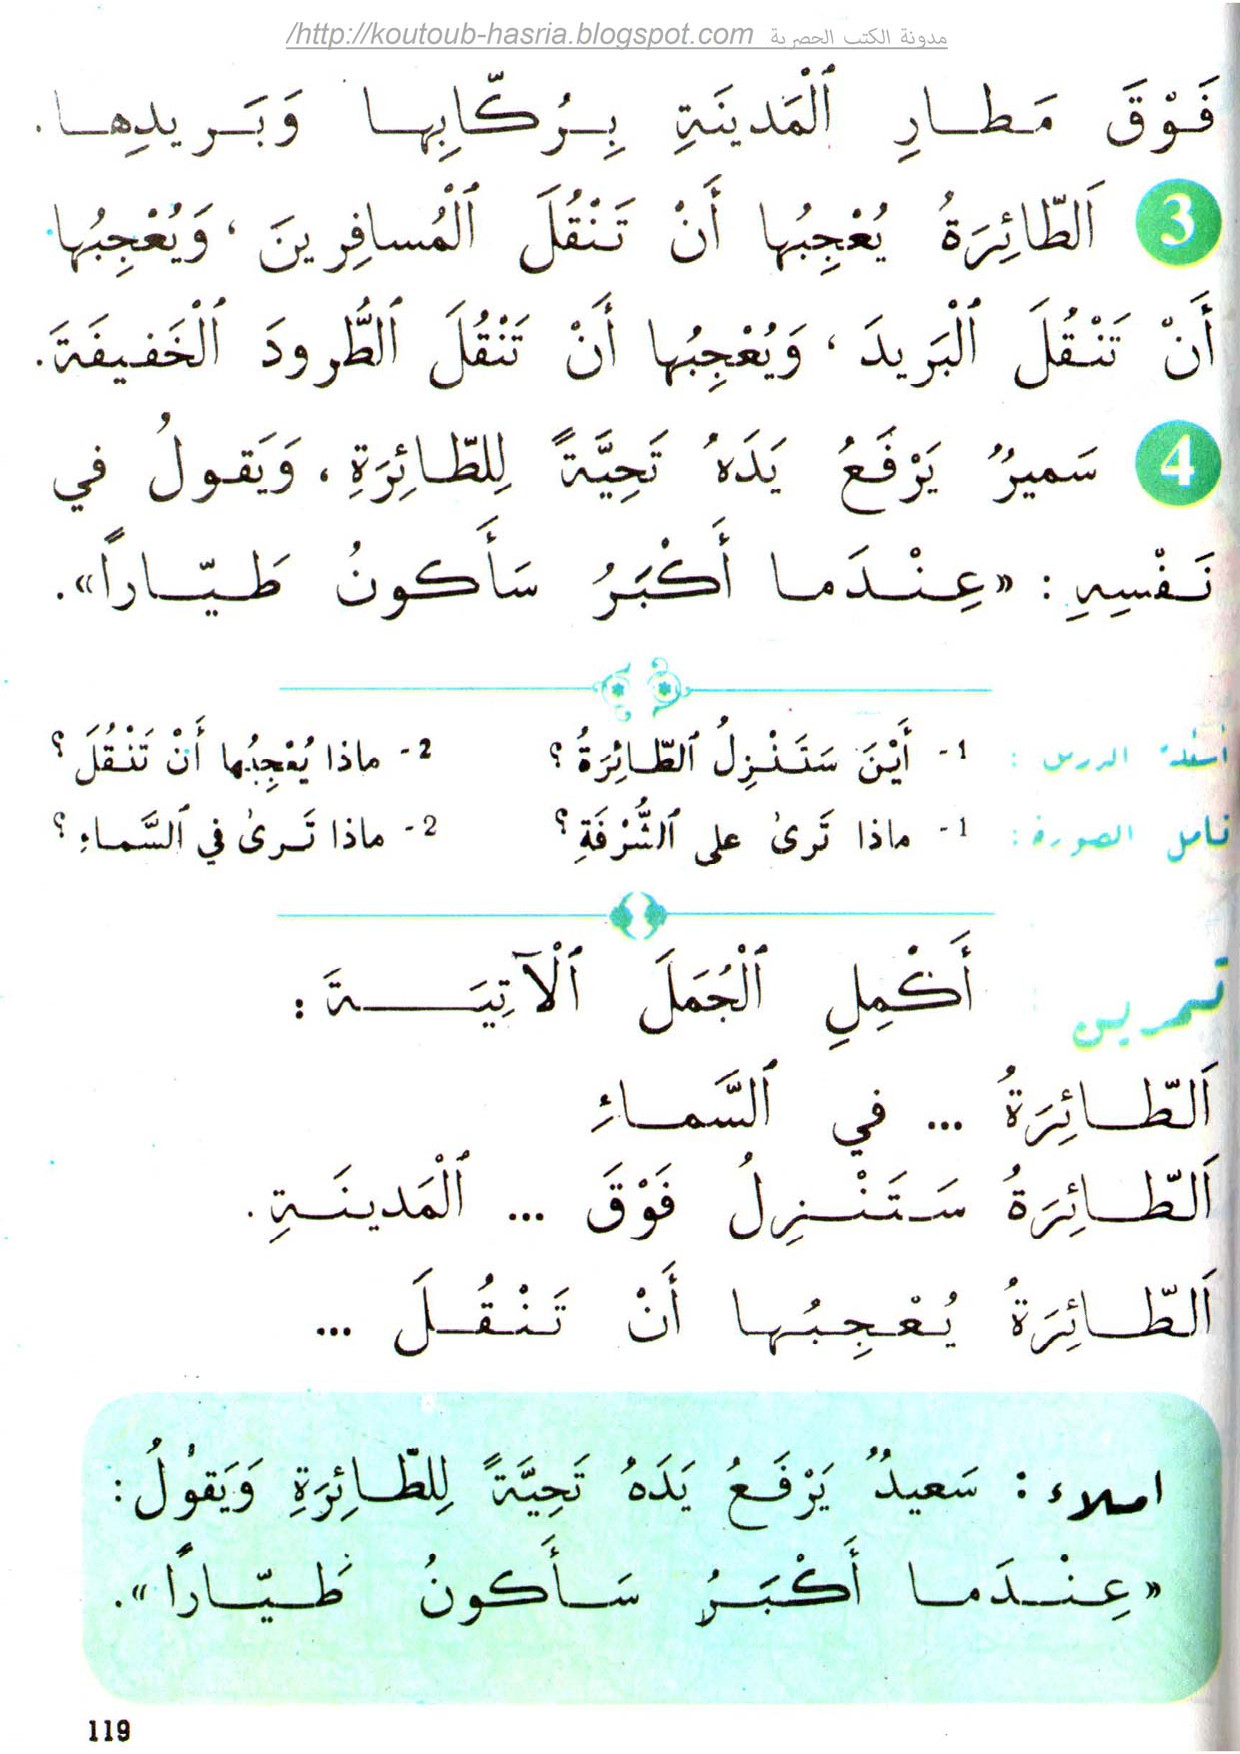 مدونة الكتب الحصرية http://koutoub-hasria.blogspot.com/
فَوْقَ مَطارِ ٱلْمَدينَةِ بِرُكّابِها وَبَريدِها.
3 اَلطّائِرَةُ يُعْجِبُها أَنْ تَنْقُلَ ٱلْمُسافِرينَ، وَيُعْجِبُها
أَنْ تَنْقُلَ ٱلْبَريدَ، وَيُعْجِبُها أَنْ تَنْقُلَ ٱلطُّرودَ ٱلْخَفيفَةَ.
4 سَميرٌ يَرْفَعُ يَدَهُ تَحِيَّةً لِلطّائِرَةِ، وَيَقولُ في
نَفْسِهِ: «عِنْدَما أَكْبَرُ سَأَكونُ طَيّاراً».
أسئلة الدرس: 1- أَيْنَ سَتَنْزِلُ ٱلطّائِرَةُ؟ 2- ماذا يُعْجِبُها أَنْ تَنْقُلَ؟
تأمل الصورة: 1- ماذا تَرىٰ على ٱلشُّرْفَةِ؟ 2- ماذا تَرىٰ في ٱلسَّماءِ؟
تمرين أَكْمِلِ ٱلْجُمَلَ ٱلْآتِيَةَ:
اَلطّائِرَةُ ... في ٱلسَّماءِ
اَلطّائِرَةُ سَتَنْزِلُ فَوْقَ ... ٱلْمَدينَةِ.
اَلطّائِرَةُ يُعْجِبُها أَنْ تَنْقُلَ ...
املاء: سَعيدٌ يَرْفَعُ يَدَهُ تَحِيَّةً لِلطّائِرَةِ وَيَقولُ:
«عِنْدَما أَكْبَرُ سَأَكونُ طَيّاراً».
119